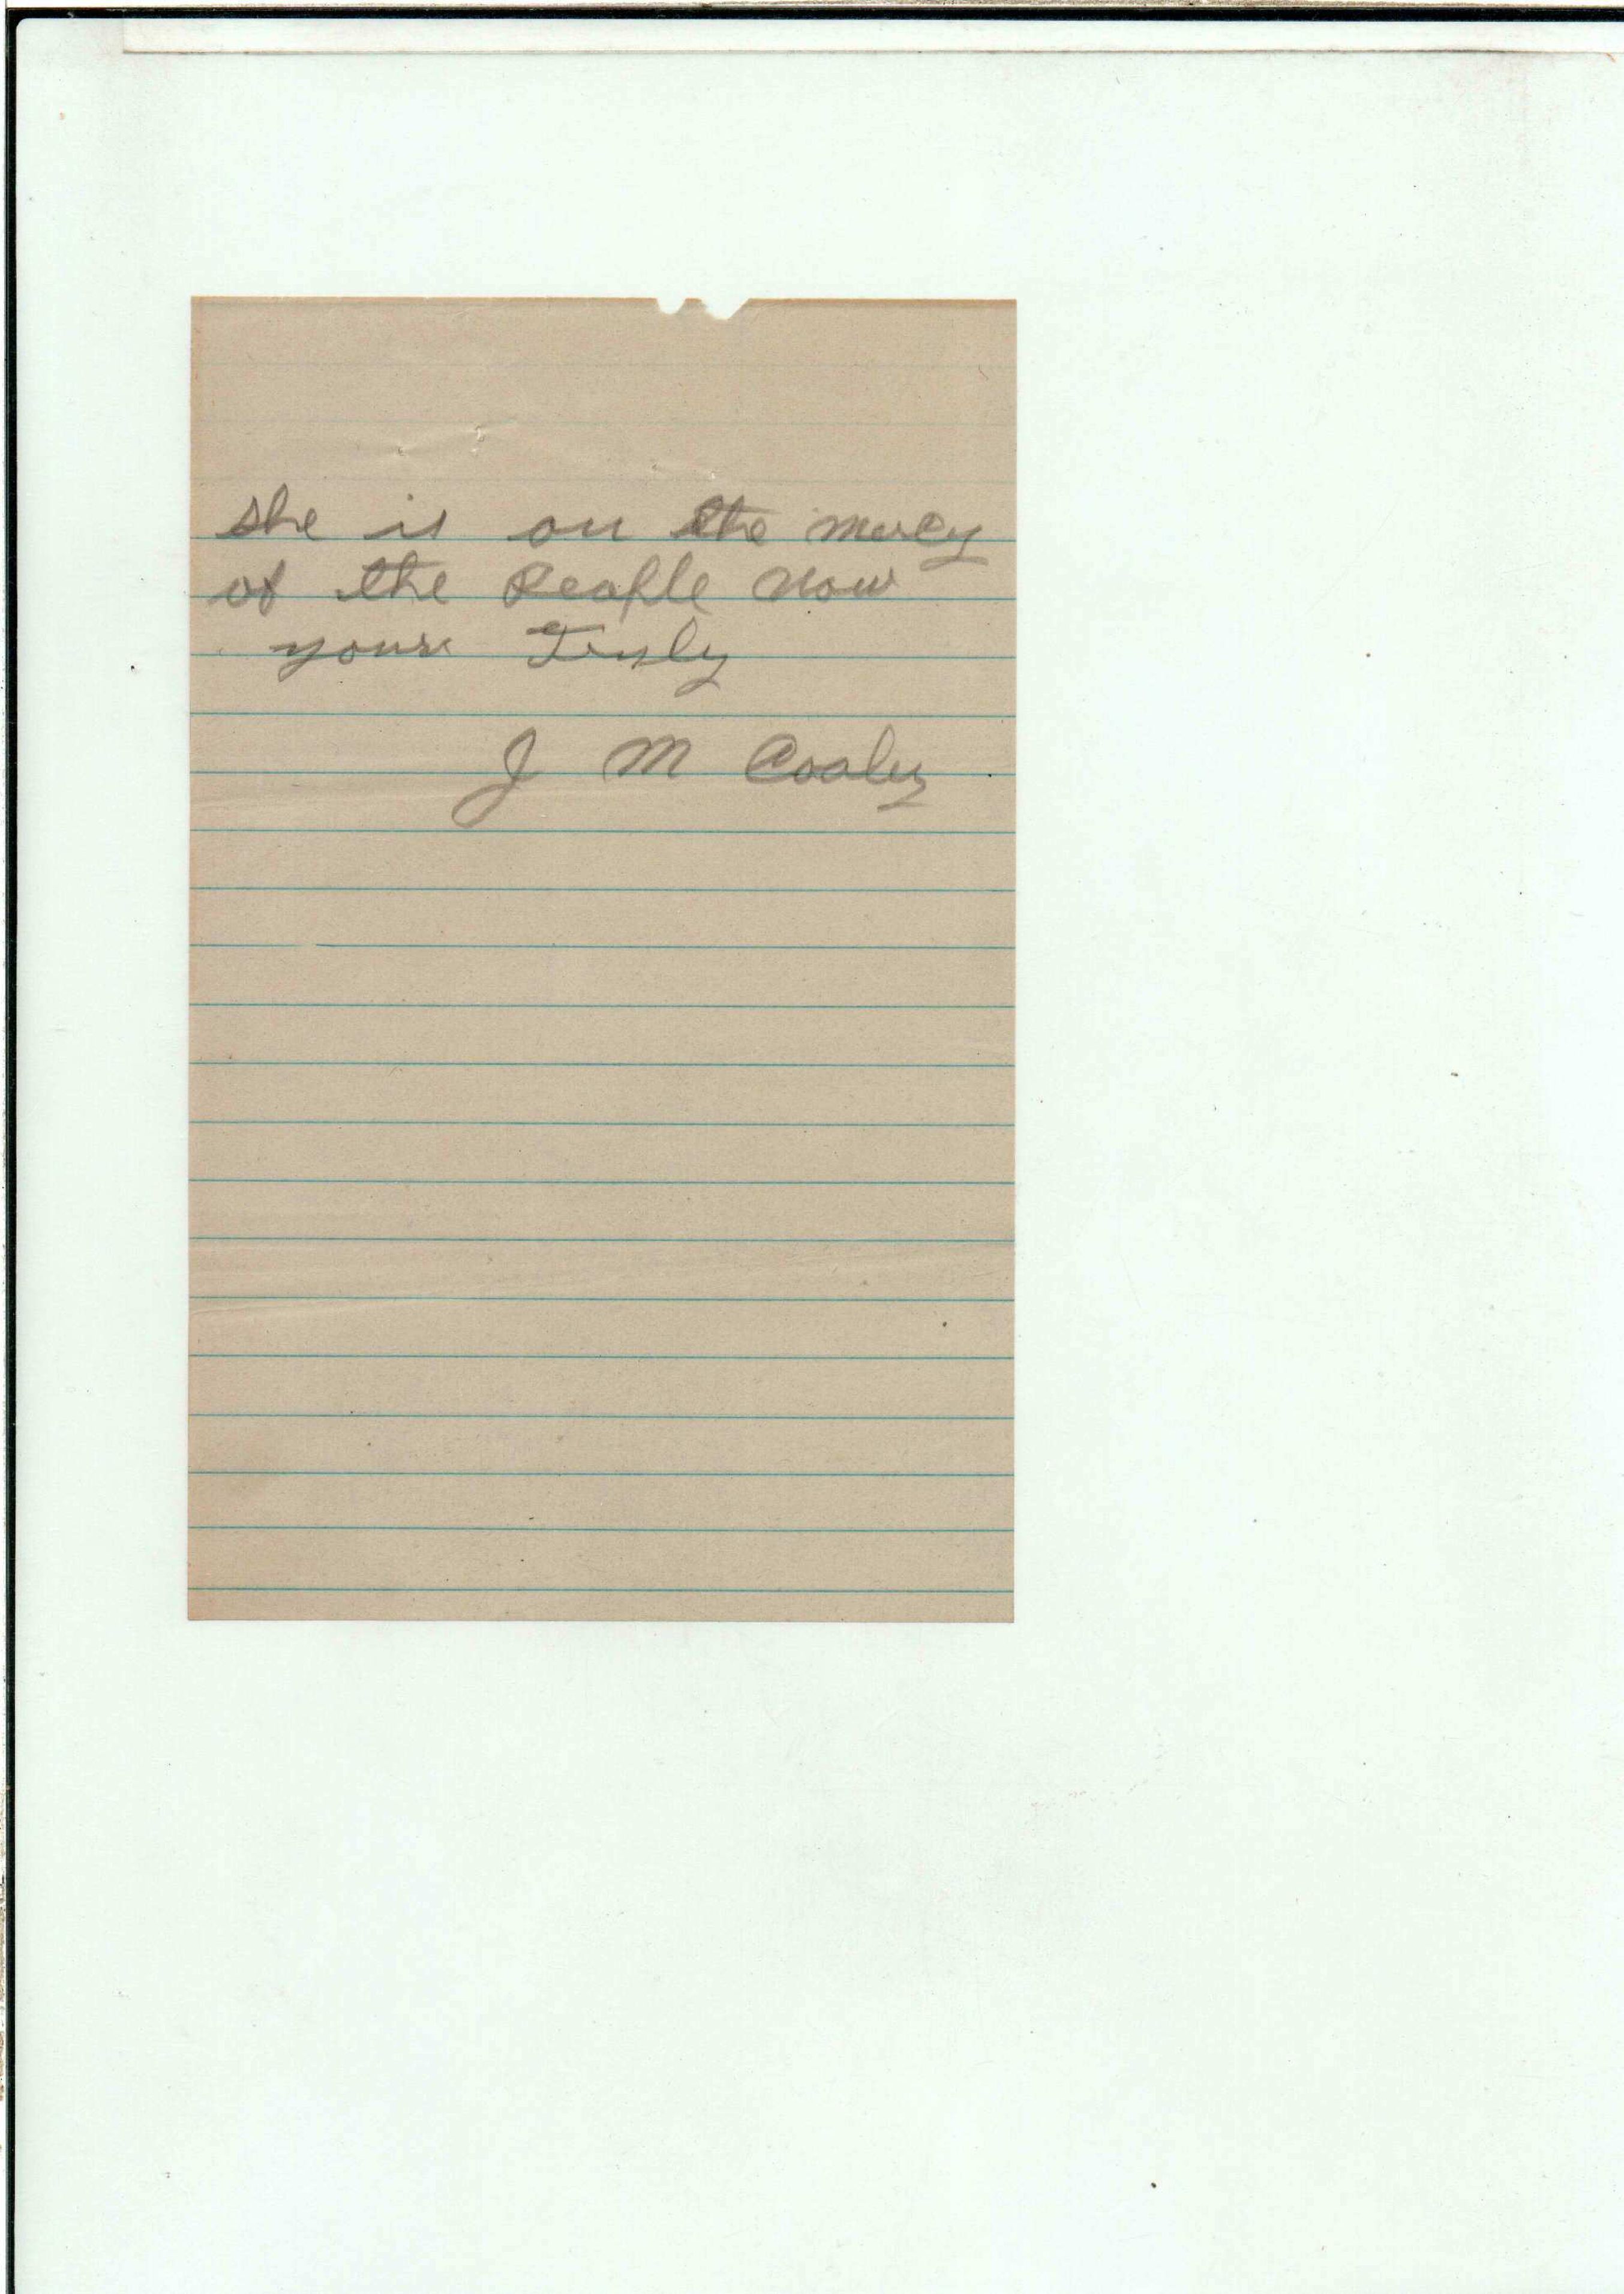 she is on the mercy
of the People now
yours Truly
J M Cooley